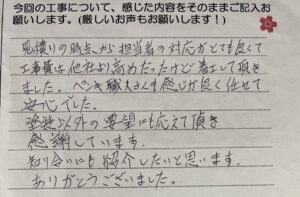 今回の工事について、感じた内容をそのままご記入
お願いします。(厳しいお声もお願いします！)
見積りの時点から担当者の対応がとても良くて
工事費は他社より高かったけど着工して頂き
ました。ペンキ職人さんも感じが良く任せて
安心でした。
塗装以外の要望にも応えて頂き
感謝しています。
知り合いにも紹介したいと思います。
ありがとうございました。